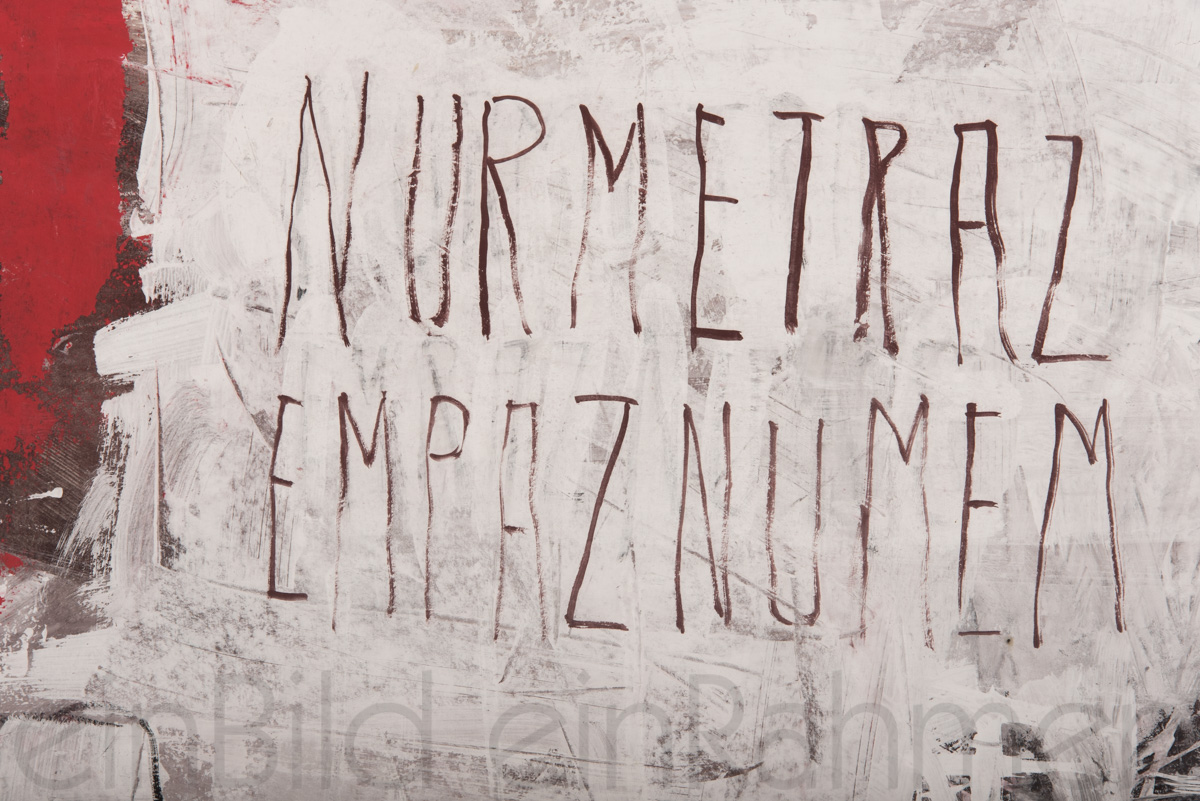 NURMETRAZ
EMPAZNUMEM
einBild einRahmen